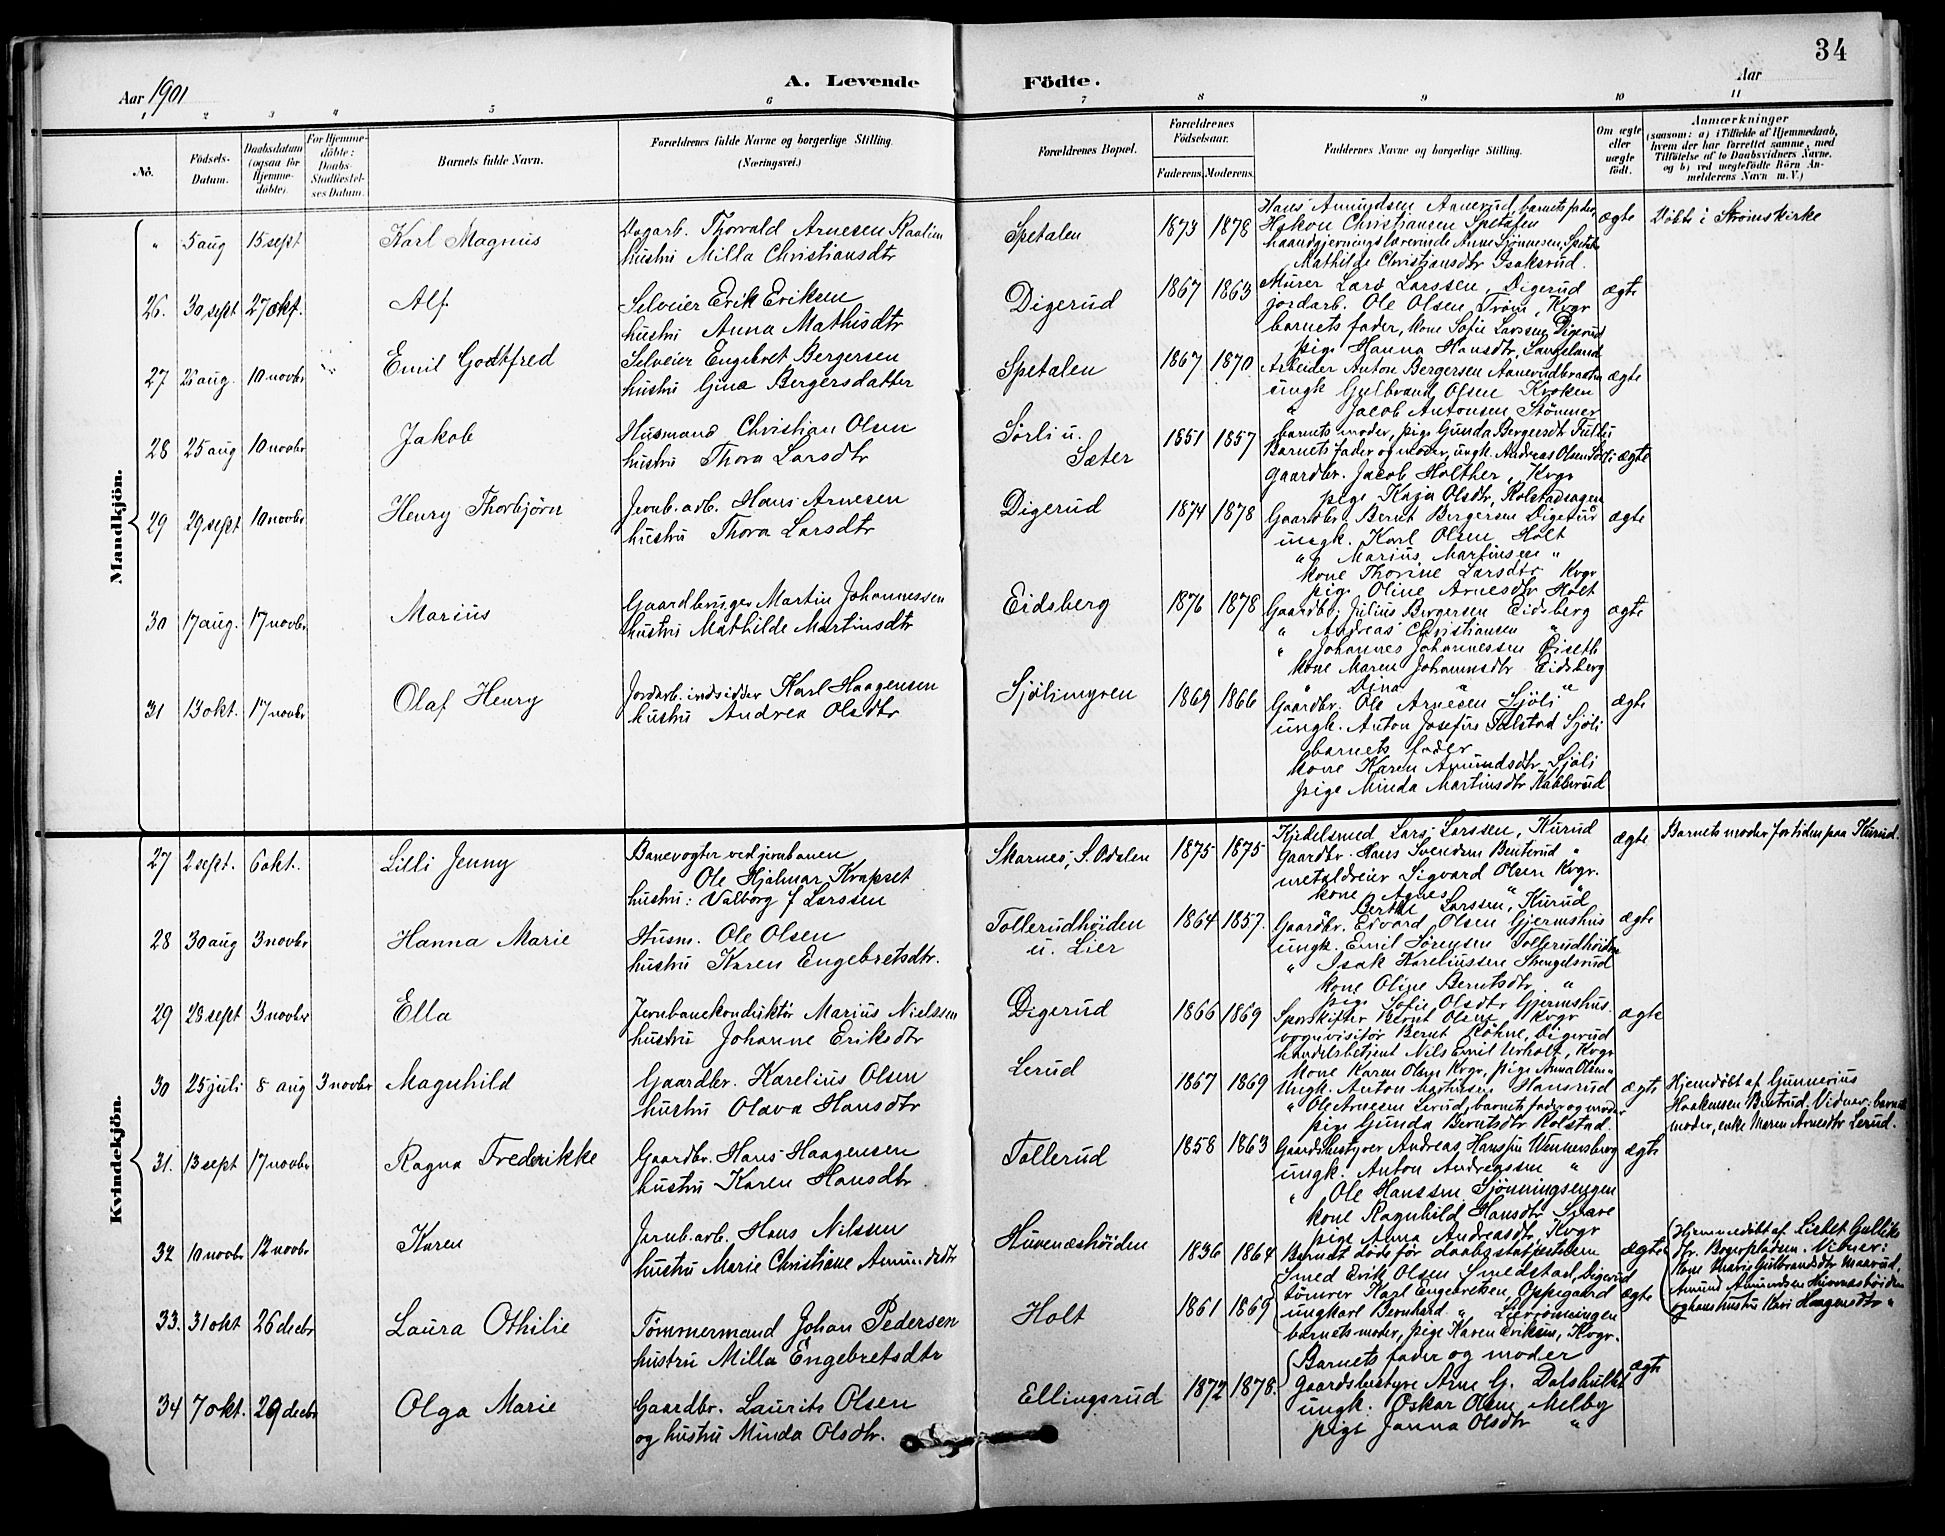 34
Aar 1901
A. Levende Födte.
Aar
1 2 3 4 5 6 7 8 9 10 11
No.
Födsels-Datum.
Daabsdatum (ogsaa for Hjemme-døbte).
For Hjemme-döbte: Daabs-Stadfæstel-ses Datum.
Barnets fulde Navn.
Forældrenes fulde Navne og borgerlige Stilling. (Næringsvei.)
Forældrenes Bopæl.
Forældrenes Födselsaar.
Faderens. Moderens.
Faddernes Navne og borgerlige Stilling.
Om ægte eller uægte født.
Anmærkninger
(saasom: a) i Tilfælde af Hjemmedaab, hvem der har forrettet samme, med Tilföielse af to Daabsvidners Navne, og b) ved uegtefödte Börn An-melderens Navn m. V.)
Mandkjön.
" 5 aug 15 sept Karl Magnus
Dagarb. Thorvald Arnesen
hustru Milla Christiansdtr
Spetalen 1873 1878
Hans Amundsen Aanerud, barnets fader,
Hakon Christiansen Spetalen
haandgjerningslærerinde Anne Sjønnesen, Spetal
Mathilde Christiansdtr Isaksrud.
ægte Døbt i Strømskirke
26. 30 sept 27 okt. Alf
Selveier Erik Eriksen
hustru Anna Mathisdtr
Digerud 1867 1863
Murer Lars Larssen, Digerud
jordarb. Ole Olsen, Kvgr
barnets fader, kone Sofie Larssen, Digerud
pige Hanna Hansdtr, Langeland
ægte
27 26 aug. 10 novbr Emil Godtfred
Selveier Engebret Bergersen
hustru Gina Bergersdatter
Spetalen 1867 1870
Arbeider Anton Bergersen Aanerudbraaten
ungk Gulbrand Olsen Kroken
" Jacob Antonsen Stømner
barnets moder, pige Gunda Bergersdtr
ægte
28 25 aug 10 novbr Jakob
Husmand Christian Olsen
hustru Thora Larsdtr
Sørli u. Sæter 1851 1857
Barnets fader og moder, ungk. Andreas Olsen Sørli
Gaardbr. Jacob Holther, Kvgr
pige Kaja Olsdtr, Rolstadsagen
ægte
29 29 sept 10 novbr Henry Thorbjørn
Jernb. arb. Hans Arnesen
hustru Thora Larsdtr
Digerud 1874 1878
Gaardbr. Bernt Bergersen Digerud
ungk. Karl Olsen Holt
" Marius Martinsen "
kone Thorine Larsdtr Kvgr
pige Oline Arnesdtr Holt
ægte
30 17 aug. 17 novbr Marius
Gaardbruger Martin Johannessen
hustru Mathilde Martinsdtr
Eidsberg 1876 1878
Gaardbr. Julius Bergersen Eidsberg
" Andreas Christiansen "
" Johannes Johannessen Diseth
kone Maren Johannsdtr Eidsberg
" Dina " "
ægte
31 13 okt. 17 novbr Olaf Henry
Jordarb. indsidder Karl Haagensen
hustru Andrea Olsdtr
Sjølimyren 1869 1866
Gaardbr. Ole Arnesen Sjøli
ungk. Anton Josefus Tulstad Sjøli
barnets fader
kone Karen Amundsdtr Sjøli
pige Minda Martinsdtr Rabberud
ægte
Kvindekjön.
27 2 sept. 6 okt. Lilli Jenny
Banevogter ved jernbanen
Ole Hjalmar Krapset
hustru: Valborg f Larssen
Skarnes, S. Odalen 1875 1875
Kjedelsmed Lars Larssen, Kurud
Gaardbr. Hans Svendsen Benterud "
metaldreier Sigvard Olsen Kvgr.
kone Agnes " "
" Berthe Larssen, Kurud
ægte Barnets moder for tiden paa Kurud.
28 30 aug 3 novbr Hanna Marie
Husm. Ole Olsen
hustru Karen Engebretsdtr.
Tollerudhøiden u. Lier 1864 1857.
Gaardbr. Edvard Olsen Gjermshus
ungk. Emil Sørensen Tollerudhøiden
" Isak Kareliussen Strengelsrud
kone Oline Berntsdtr "
pige Sofie Olsdtr Gjermshus.
ægte
29 28 sept 3 novbr Ella
Jernbanekonduktør Marius Nielssen
hustru Johanne Eriksdtr
Digerud 1866 1869
Sporskifter Bernt Olsen Kvgr
vognvisitør Bernt Røhne, Digerud
handelsbetjent Nils Emil Urholt, Kvgr
kone Karen Olsen Kvgr, pige Anna Olsen "
ægte
30 25 juli 8 aug 3 novbr Magnhild
Gaardbr. Karelius Olsen
hustru Olava Hansdtr
Lerud 1867 1869
Ungk. Anton Martinsen Hansrud
" Ole Arnesen Lerud, barnets fader og moder
pige Gunda Berntsdtr Rolstad.
ægte Hjemdøbt af Gunnerius
Haakensen Bustrud. Vidner: barnets
moder, enke Maren Arnesdtr Lerud.
31. 13 sept 17 novbr Ragna Frederikke
Gaardbr. Hans Haagensen
hustru Karen Hansdtr.
Tollerud 1858 1863
Gaardsbestyrer Andreas Hanssen Wennersberg
ungk. Anton Andreassen "
" Ole Hanssen Sjønningsengen
kone Ragnhild Hansdtr Spare
pige Anna Andreasdtr, Kvgr
ægte
32 10 novbr 12 novbr Karen
Jernb. arb. Hans Nilsen
hustru Marie Christiane Amundsdtr
Huvenæshøiden 1836 1864
Barnet døde før daabsstadfæstelsen
ægte Hjemmedøbt af Lisbet Gulliks
dtr. Bogerpladsen. Vidner:
Kone Marie Gulbrandsdtr Maarud,
Amund Amundsen Huvenæshøiden
og hans hustru Kari Haagensdtr "
33. 31 okt 26 decbr Laura Othilie
Tømmermand Johan Pedersen
hustru Milla Engebretsdtr
Holt 1861 1869
Smed Erik Olsen Smedstad, Digerud
tømrer Karl Engebretsen, Oppegaard
ungkarl Bernhard " Lierrønningen
barnets moder, pige Karen Eriksen, Kvgr.
ægte
34 7 okt. 29 decbr Olga Marie
Gaardbr. Laurits Olsen
og hustru Minda Olsdtr.
Ellingsrud 1872 1878.
Barnets fader og moder
Gaardsbestyr Arne G. Dalshullet
ungk. Oskar Olsen, Melby
pige Janna Olsdtr "
ægte